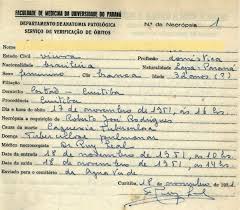 FACULDADE DE MEDICINA DA UNIVERSIDADE DO PARANÁ
DEPARTAMENTO DE ANATOMIA PATOLÓGICA
SERVIÇO DE VERIFICAÇÃO DE ÓBITOS
N.º da Necrópsia 1
Nome
Estado Civil viuva Profissão domestica
Nacionalidade brasileira Naturalidade Lapa-Paraná
Sexo feminino Côr branca Idade 32 anos (?)
Domicílio
Curitiba
Curitiba
Óbito dia 17 de novembro de 1951 às 16 hs.
Necrópsia a requisição de Roberto José Rodrigues
Causa da morte Caquexia Tuberculosa
Doença Tuberculose pulmonar
Médico necroscopista Dr Ruy Leal
Data da entrada 18 de novembro de 1951, às 10 hs.
Data da saída 18 de novembro de 1951, às 14 hs.
Enviado para o cemitério de Agua Verde
Curitiba, 18 de novembro de 1951